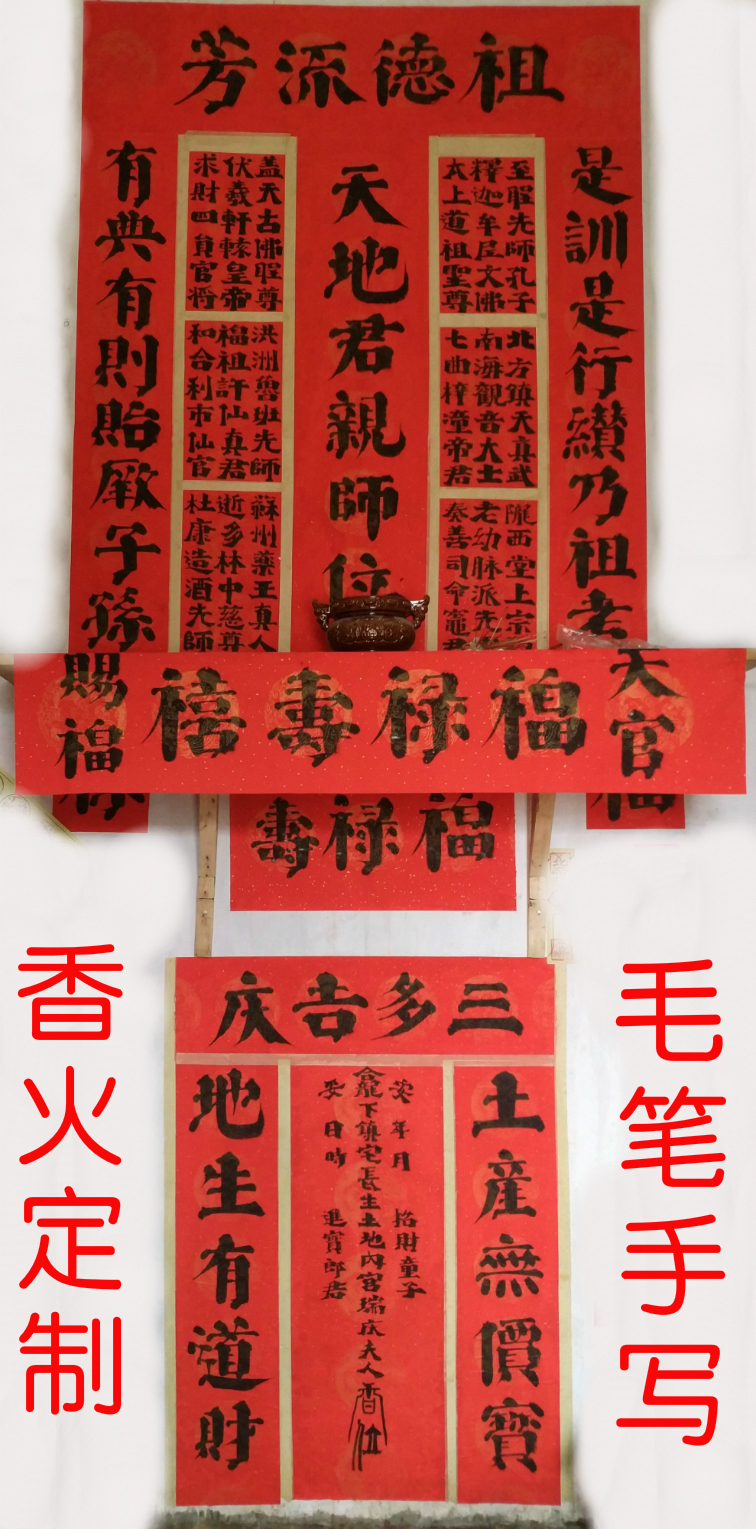 祖德流芳
是訓是行纘乃祖考
至聖先師孔子
釋迦牟尼文佛
太上道祖聖尊
北方鎮天真武
南海觀音大士
七曲梓潼帝君
隴西堂上宗
老幼脉派先
奏善司命竈君
天地君親師位
蓋天古佛聖尊
伏羲軒轅皇帝
求財四員官將
洪洲魯班先師
福祖許仙真君
和合利市仙官
蘇州藥王真人
逝多林中慈尊
杜康造酒先師
有典有則貽厥子孫
天官
福禄壽禧
賜福
福禄壽
三多吉庆
土産無價寶
安年月
招財童子
合龍下鎮宅長生土地内宫瑞庆夫人香位
安日時
進寶郎君
地生有道財
毛笔手写
香火定制